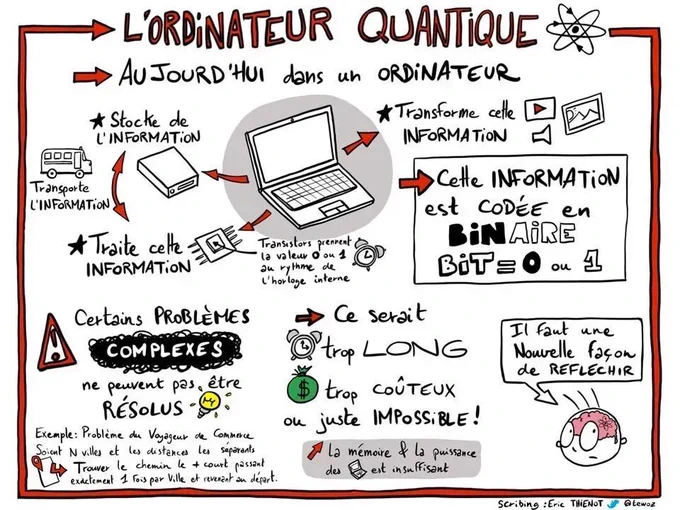 L'ORDINATEUR QUANTIQUE
AUJOURD'HUI dans un ORDINATEUR
Stocke de
L'INFORMATION
Transporte
L'INFORMATION
Traite cette
INFORMATION
Transistors prennent
la valeur 0 ou 1
au rythme de
l'horloge interne
Transforme cette
INFORMATION
Cette INFORMATION
est CODÉE en
BINAIRE
BIT = 0 ou 1
Certains PROBLÈMES
COMPLEXES
ne peuvent pas être
RÉSOLUS
Exemple : Problème du Voyageur de Commerce
Soient N villes et les distances les séparants
Trouver le chemin le + court passant
exactement 1 fois par Ville et revenant au départ.
Ce serait
trop LONG
$ trop COÛTEUX
ou juste IMPOSSIBLE !
La mémoire & la puissance
des est insuffisant
Il faut une
Nouvelle façon
de REFLECHIR
Scribing : Eric THIENOT @tewoz